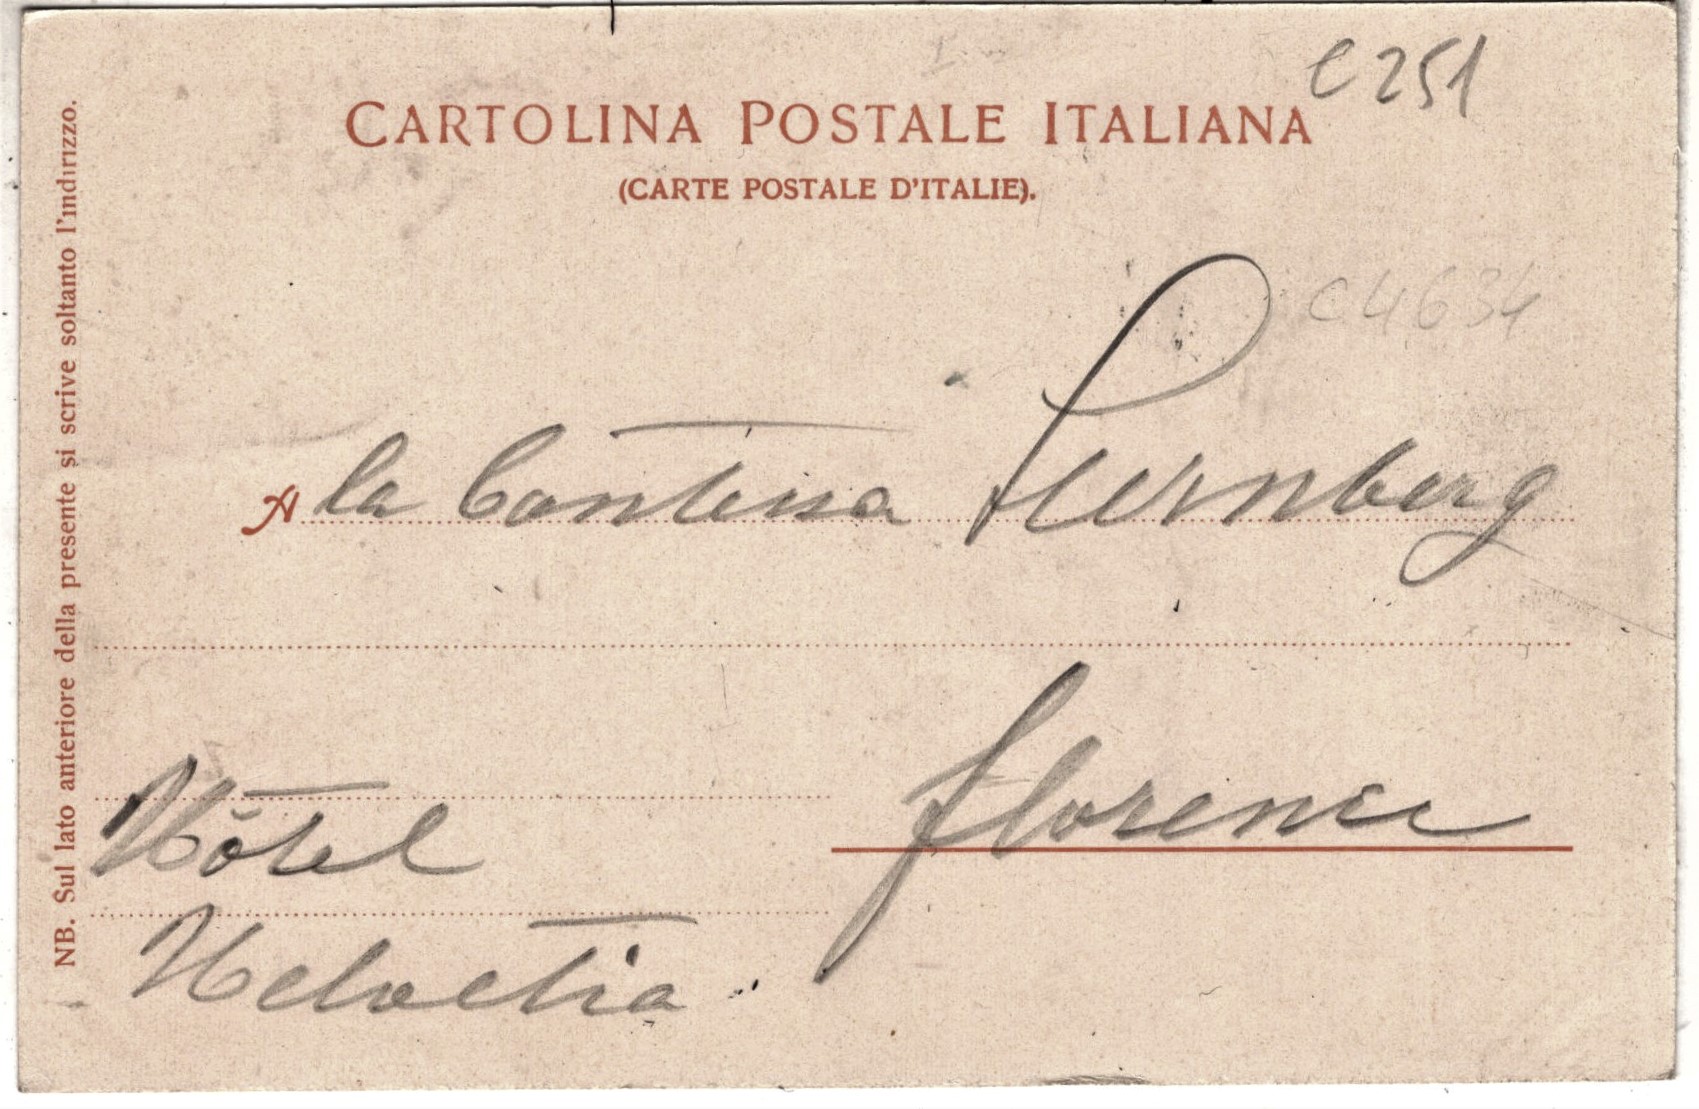 CARTOLINA POSTALE ITALIANA
C 251
(CARTE POSTALE D'ITALIE).
C 4634
A la Contessa
Florence
Hôtel
Helvetia
NB. Sul lato anteriore della presente si scrive soltanto l'indirizzo.